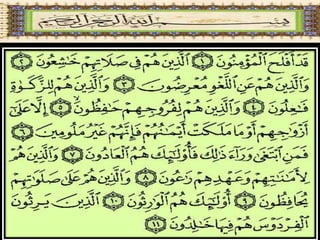 بسم الله الرحمن الرحيم
قَدْ أَفْلَحَ الْمُؤْمِنُونَ ١ الَّذِينَ هُمْ فِي صَلَاتِهِمْ خَاشِعُونَ ٢
وَالَّذِينَ هُمْ عَنِ اللَّغْوِ مُعْرِضُونَ ٣ وَالَّذِينَ هُمْ لِلزَّكَوٰةِ
فَاعِلُونَ ٤ وَالَّذِينَ هُمْ لِفُرُوجِهِمْ حَافِظُونَ ٥ إِلَّا عَلَىٰ
أَزْوَاجِهِمْ أَوْ مَا مَلَكَتْ أَيْمَانُهُمْ فَإِنَّهُمْ غَيْرُ مَلُومِينَ ٦
فَمَنِ ابْتَغَىٰ وَرَاءَ ذَٰلِكَ فَأُولَٰئِكَ هُمُ الْعَادُونَ ٧ وَالَّذِينَ هُمْ
لِأَمَانَاتِهِمْ وَعَهْدِهِمْ رَاعُونَ ٨ وَالَّذِينَ هُمْ عَلَىٰ صَلَوَاتِهِمْ
يُحَافِظُونَ ٩ أُولَٰئِكَ هُمُ الْوَارِثُونَ ١٠ الَّذِينَ يَرِثُونَ
الْفِرْدَوْسَ هُمْ فِيهَا خَالِدُونَ ١١